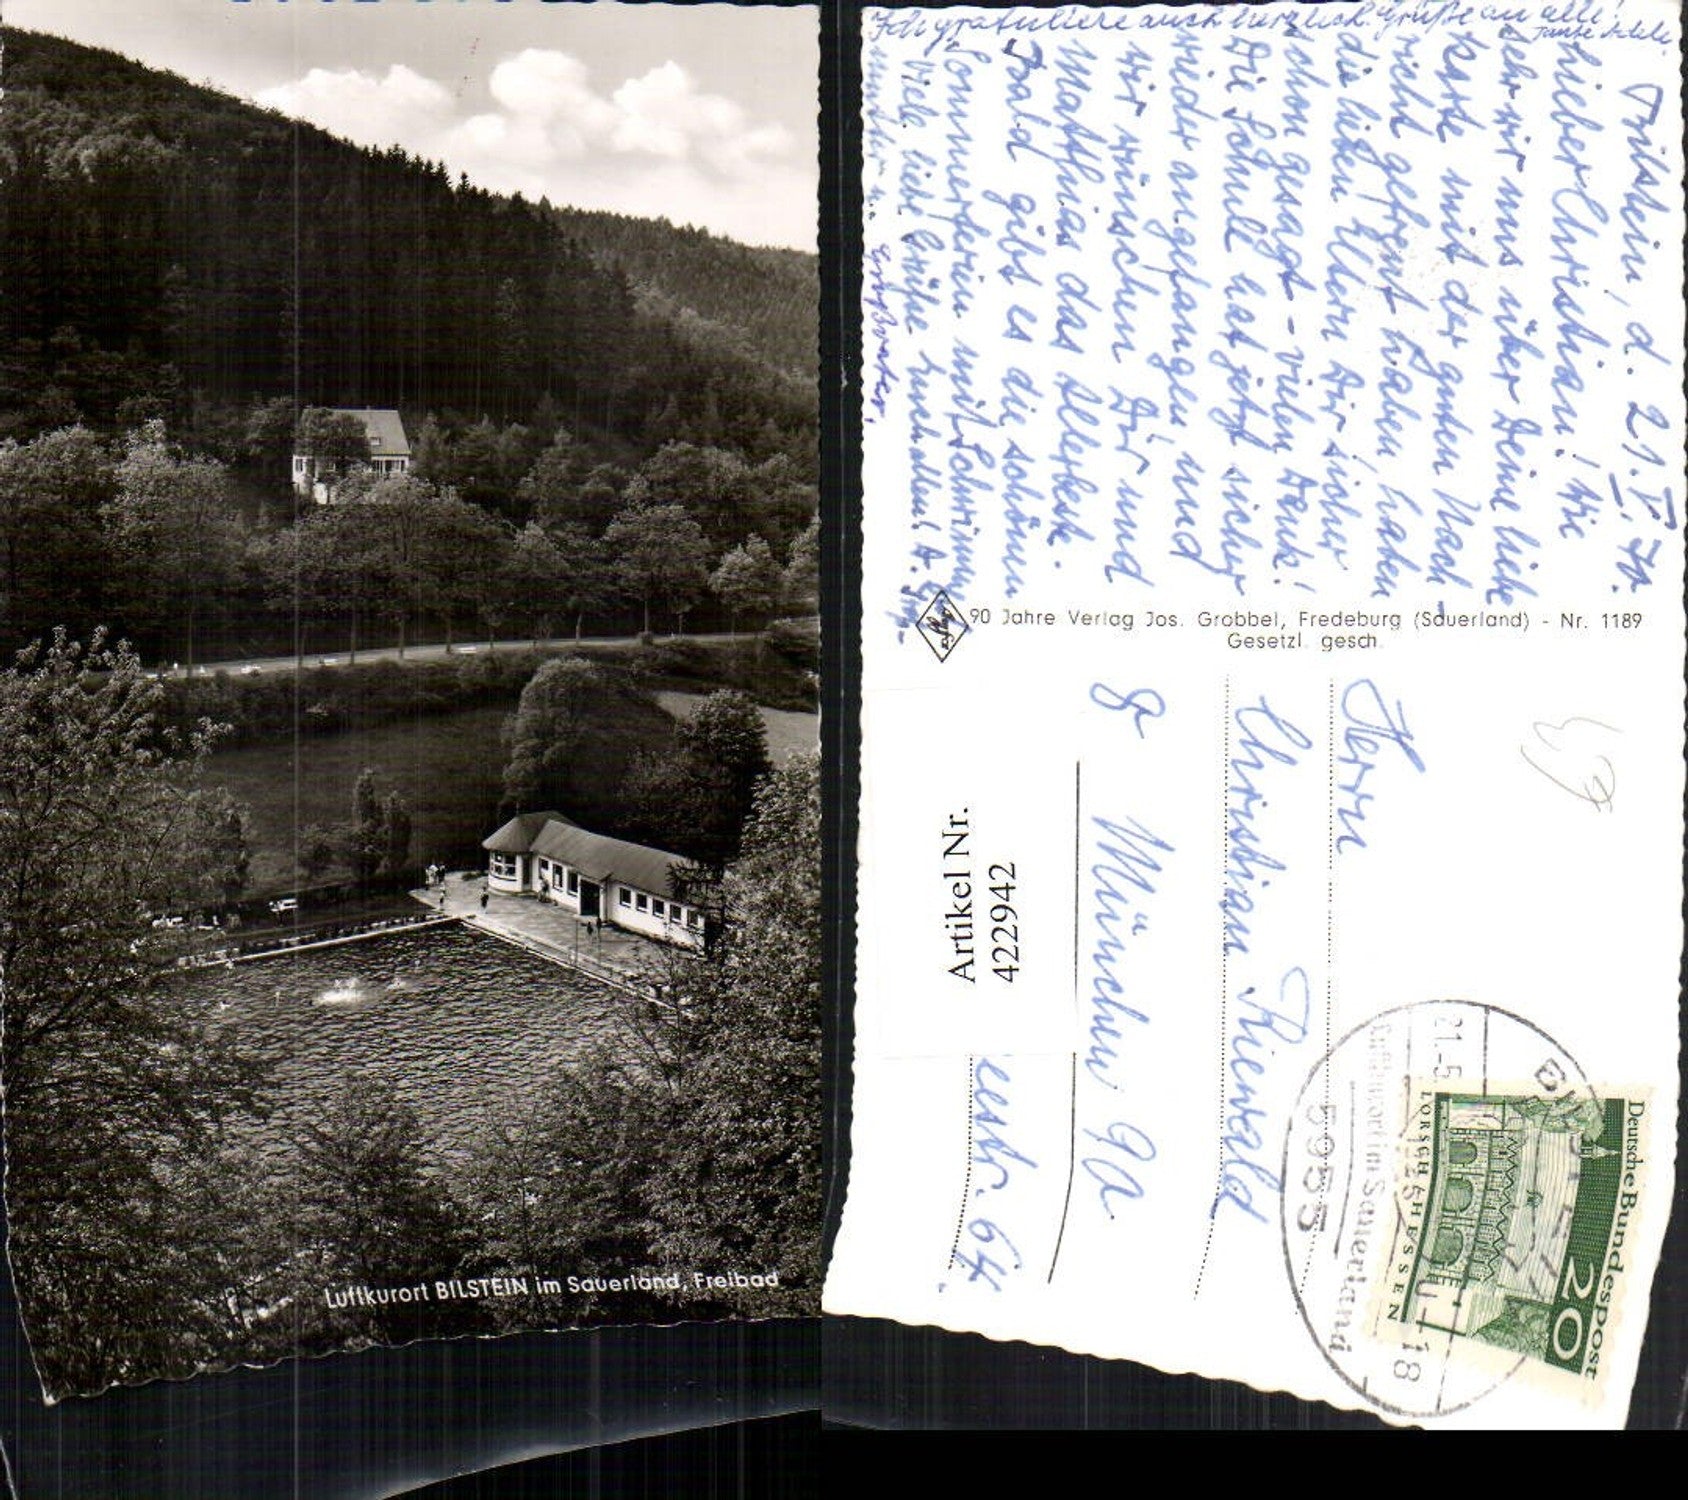 Luftkurort BILSTEIN im Sauerland, Freibad
Ich gratuliere auch herzlich. Grüße an alle!
Tante Adele
Bilstein, d. 21. V. 70.
Lieber Christian! Wie
sehr wir uns über Deine liebe
Karte mit der guten Nach-
richt gefreut haben, haben
die lieben Eltern Dir sicher
schon gesagt - vielen Dank!
Die Schule hat jetzt sicher
wieder angefangen und
wir wünschen Dir und
Matthias das Allerbeste.
Bald gibt es die schönen
Sommerferien mit Schwimmen
Viele liebe Grüße
Großvater.
90 Jahre Verlag Jos. Grobbel, Fredeburg (Sauerland) - Nr. 1189
Gesetzl. gesch.
Agfa
Herrn
Christian Thienwald
8 München 90
estr. 64.
Artikel Nr.
422942
Deutsche Bundespost
20
LORSCH/HESSEN
BILSTEIN
21.-5
18
Luftkurort im Sauerland
5955